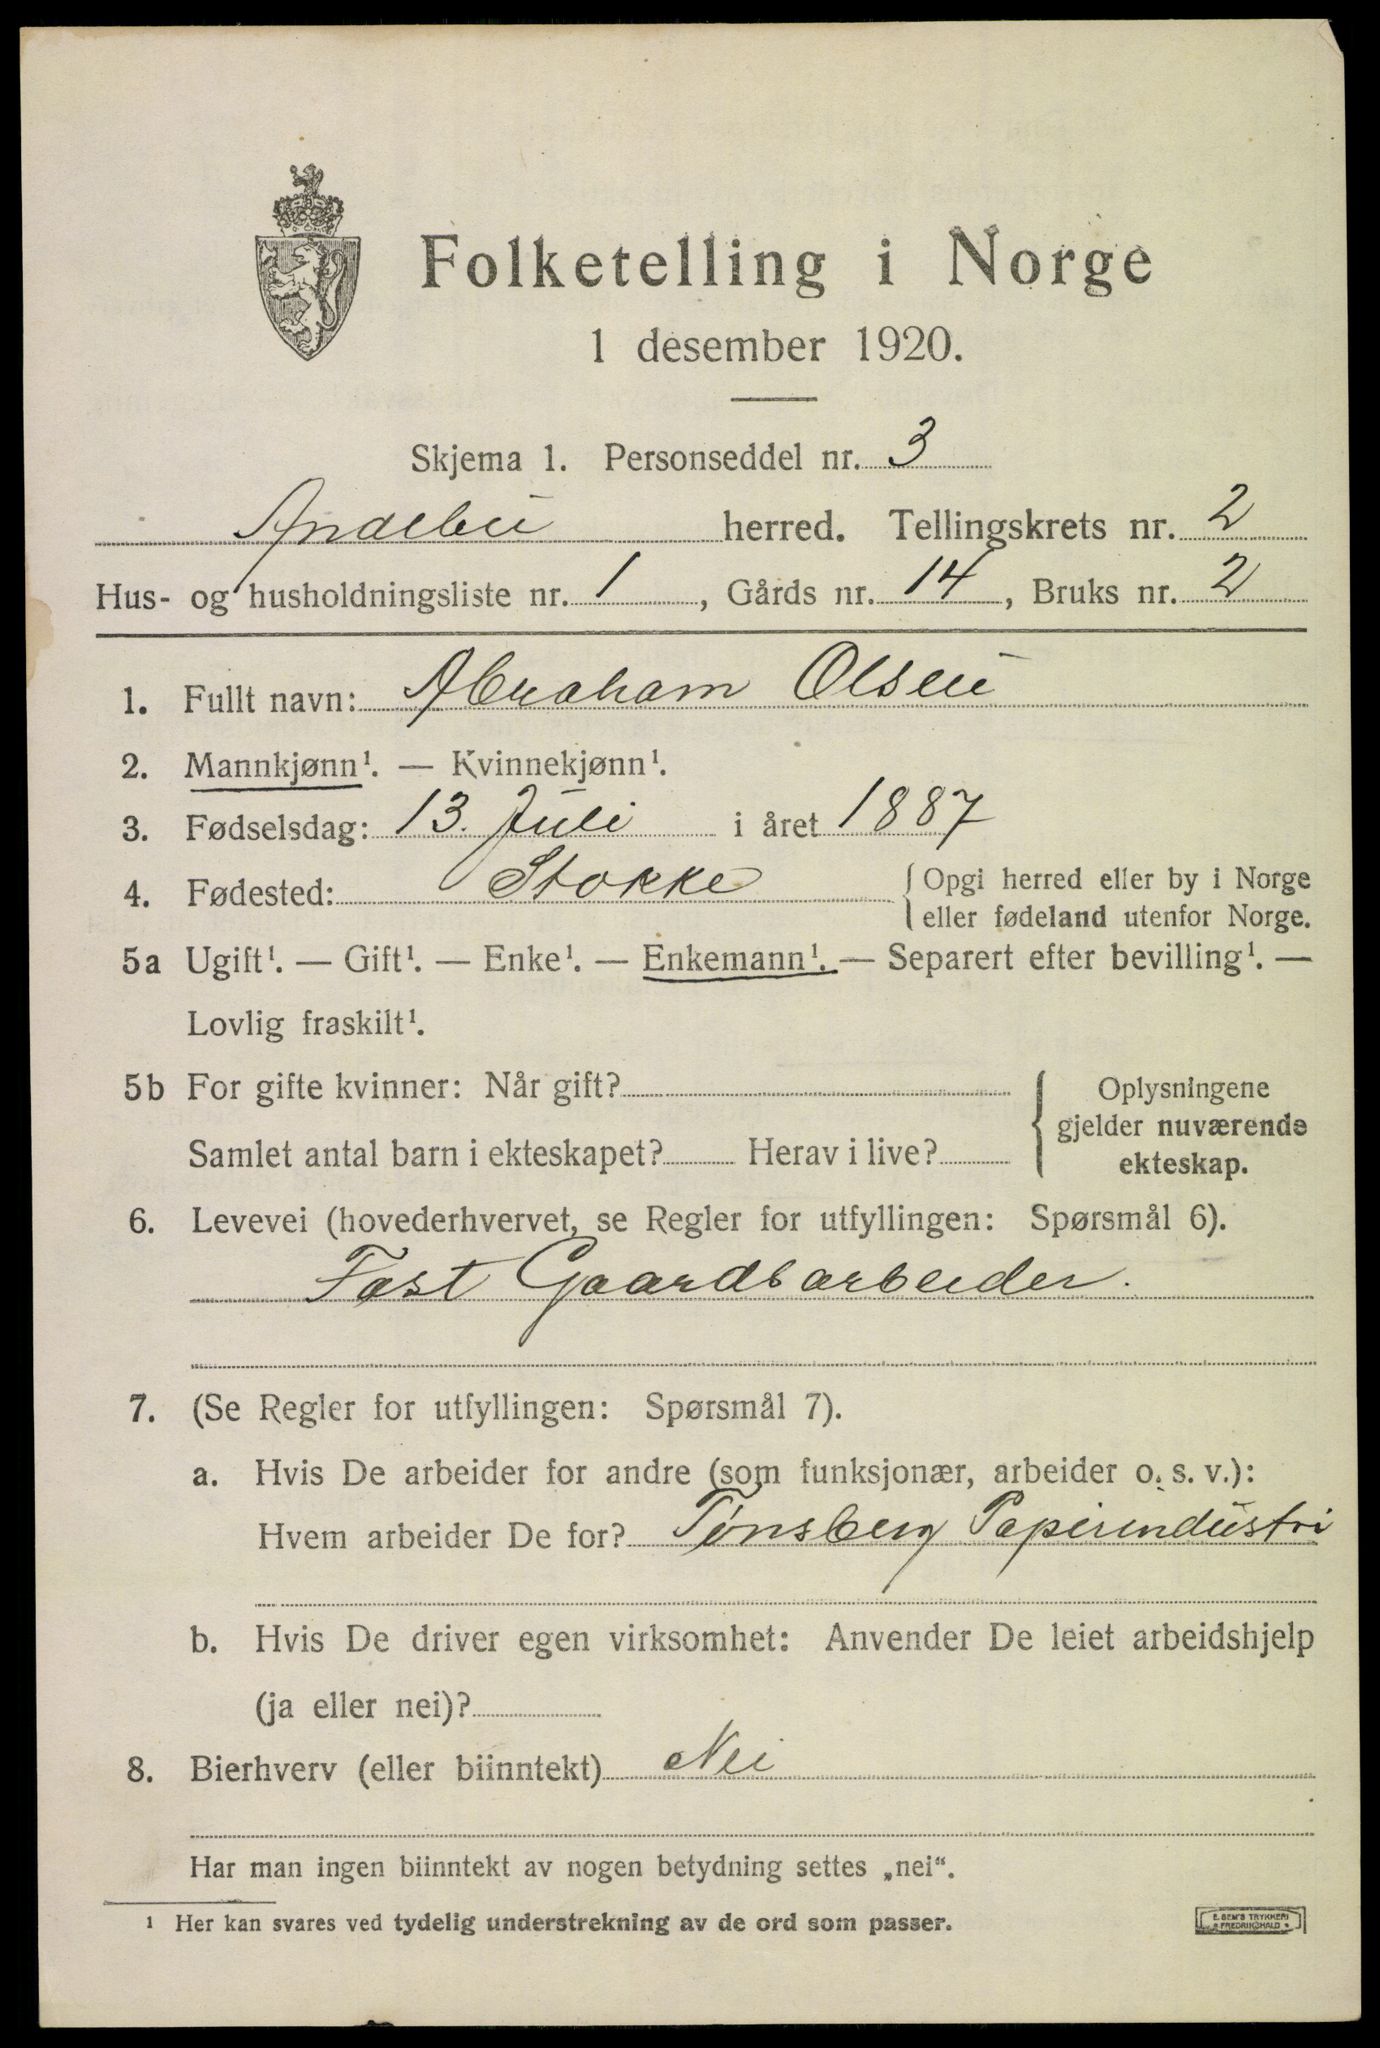 Folketelling i Norge
1 desember 1920.
Skjema 1. Personseddel nr. 3
Andebu herred. Tellingskrets nr. 2
Hus- og husholdningsliste nr. 1, Gårds nr. 14, Bruks nr. 2
1. Fullt navn: Abraham Olsen
2. Mannkjønn¹. — Kvinnekjønn¹.
3. Fødselsdag: 13. Juli i året 1887
4. Fødested: Stokke { Opgi herred eller by i Norge
eller fødeland utenfor Norge.
5a Ugift¹. — Gift¹. — Enke¹. — Enkemann¹. — Separert efter bevilling¹. —
Lovlig fraskilt¹.
5b For gifte kvinner: Når gift? { Oplysningene
gjelder nuværende
Samlet antal barn i ekteskapet? Herav i live?
ekteskap.
6. Levevei (hovederhvervet, se Regler for utfyllingen: Spørsmål 6).
Fast Gaardsarbeider.
7. (Se Regler for utfyllingen: Spørsmål 7).
a. Hvis De arbeider for andre (som funksjonær, arbeider o. s. v.):
Hvem arbeider De for? Tønsberg Papirindustri
b. Hvis De driver egen virksomhet: Anvender De leiet arbeidshjelp
(ja eller nei)?
8. Bierhverv (eller biinntekt) Nei
Har man ingen biinntekt av nogen betydning settes „nei“.
¹ Her kan svares ved tydelig understrekning av de ord som passer.
E. SEM'S TRYKKERI
FREDRIKSHALD